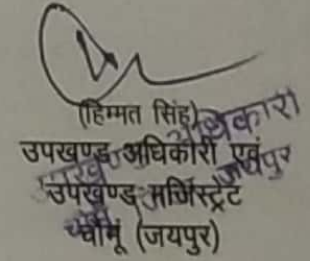 (हिम्मत सिंह)
उपखण्ड अधिकारी एवं
उपखण्ड मजिस्ट्रेट
चौमूं (जयपुर)